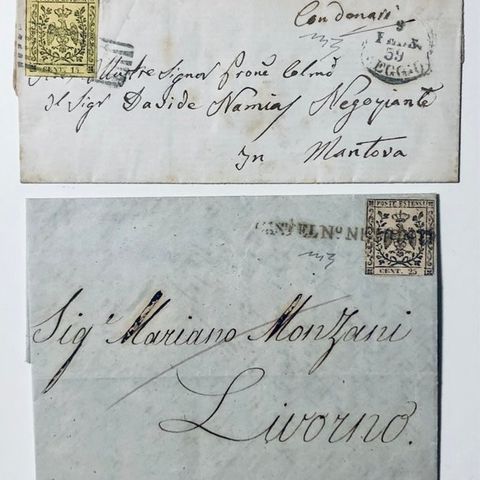 CENT. 15
Con denari
9
FEBB.
59
REGGIO
Illustre Signor Prone Colmo
Il Sigr Davide Namias Negoziante
In Mantova
CASTELNo
POSTE ESTENSI
CENT. 25
Sigr Mariano Monzani
Livorno.